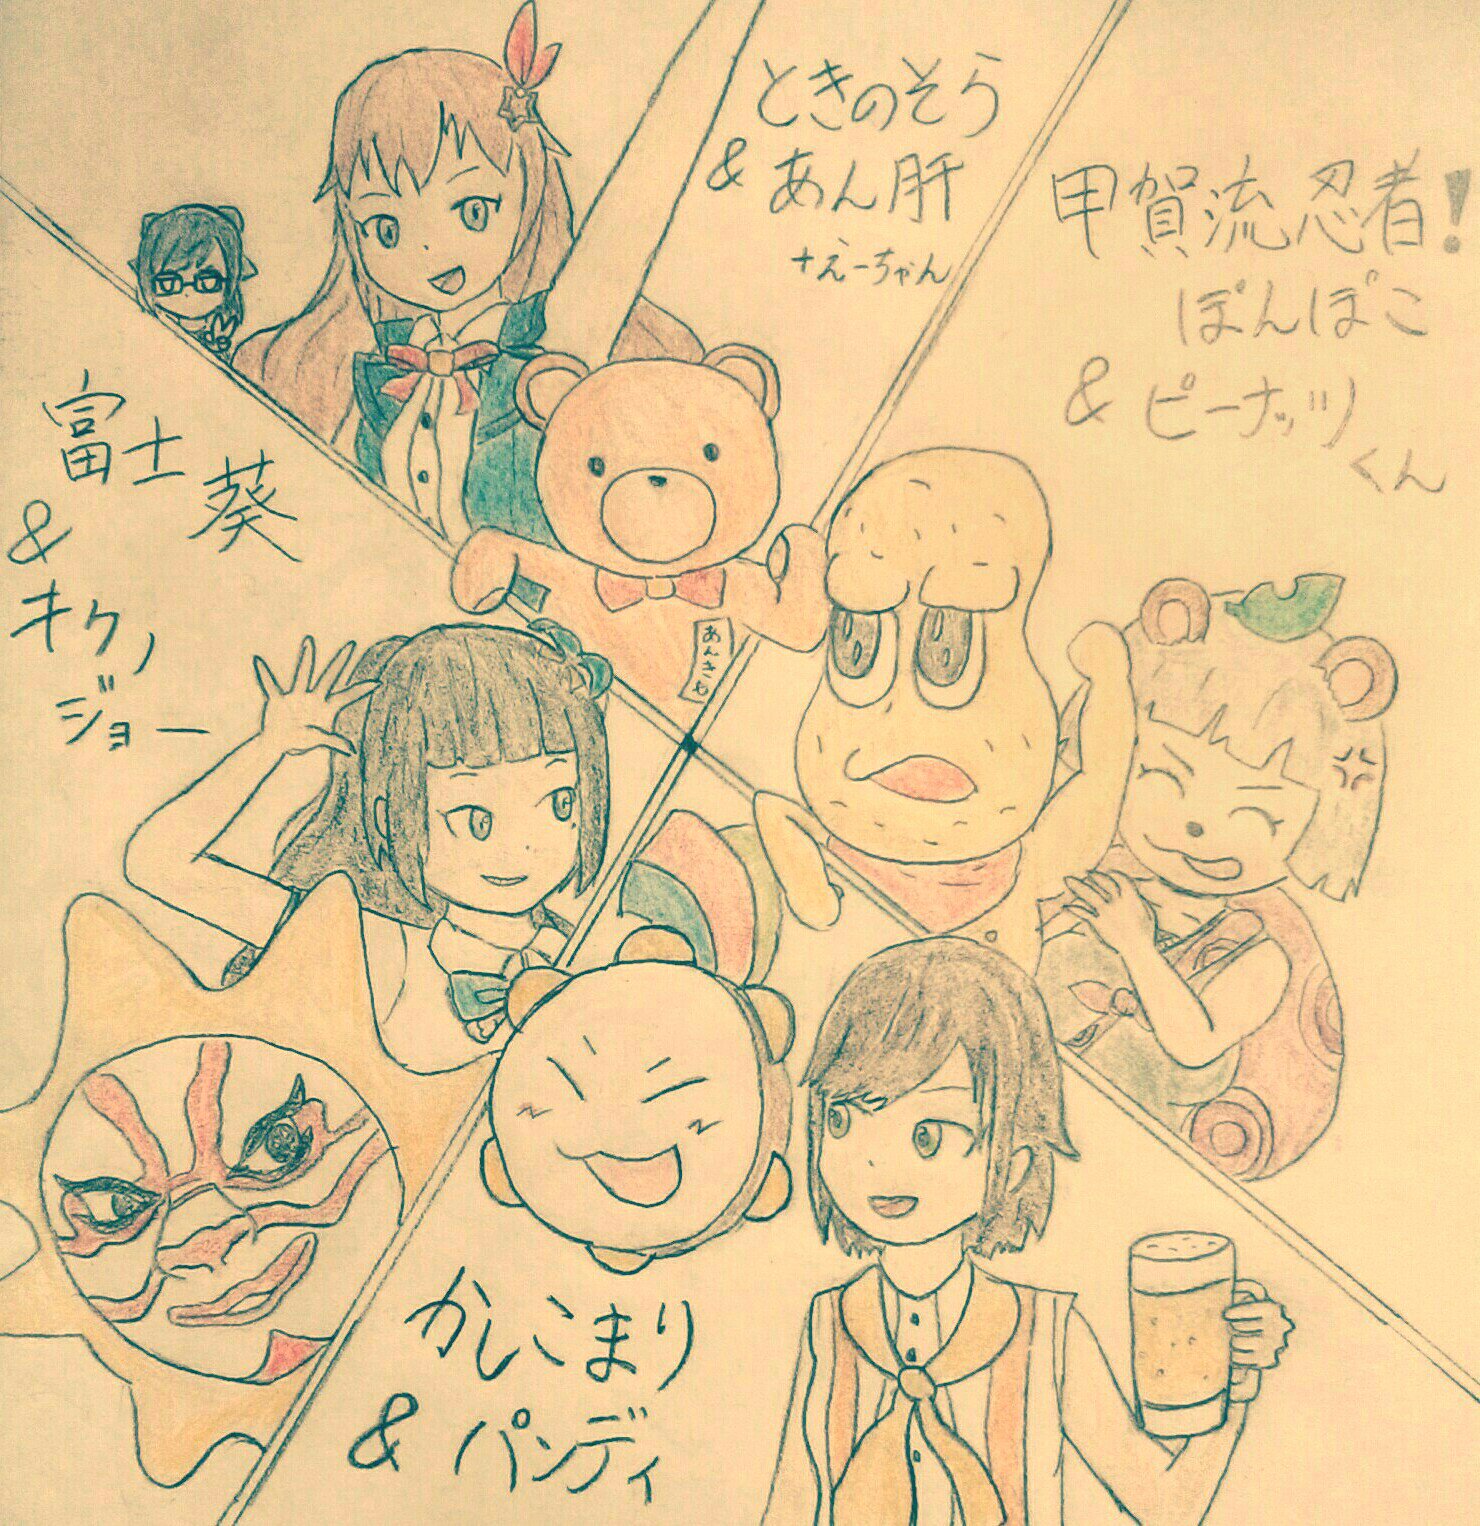 ときのそら
& あん肝
+えーちゃん
甲賀流忍者!
ぽんぽこ
& ピーナッツ
くん
富士
葵
&
キクノ
ジョー
あんきも
かしこまり
& パンディ